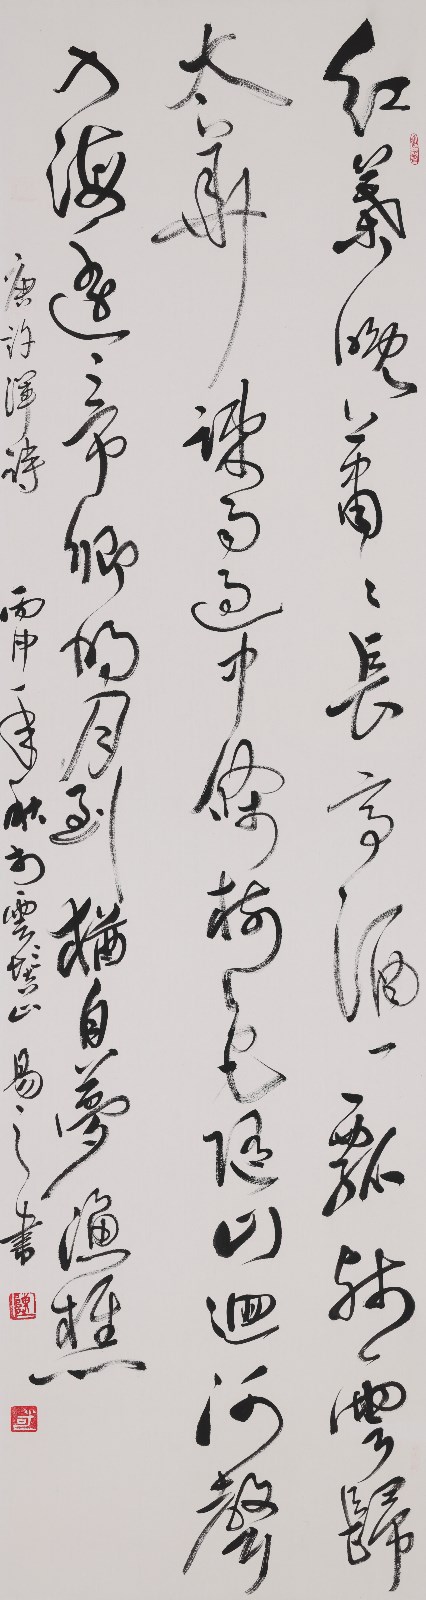 红葉晚蕭〻長亭酒一瓢殘雲歸
太華疎雨過中條樹色随山迴河聲
入海遥帝鄉明月到猶自夢漁樵
唐許渾詩 丙申年秋於雲髻山 易之書